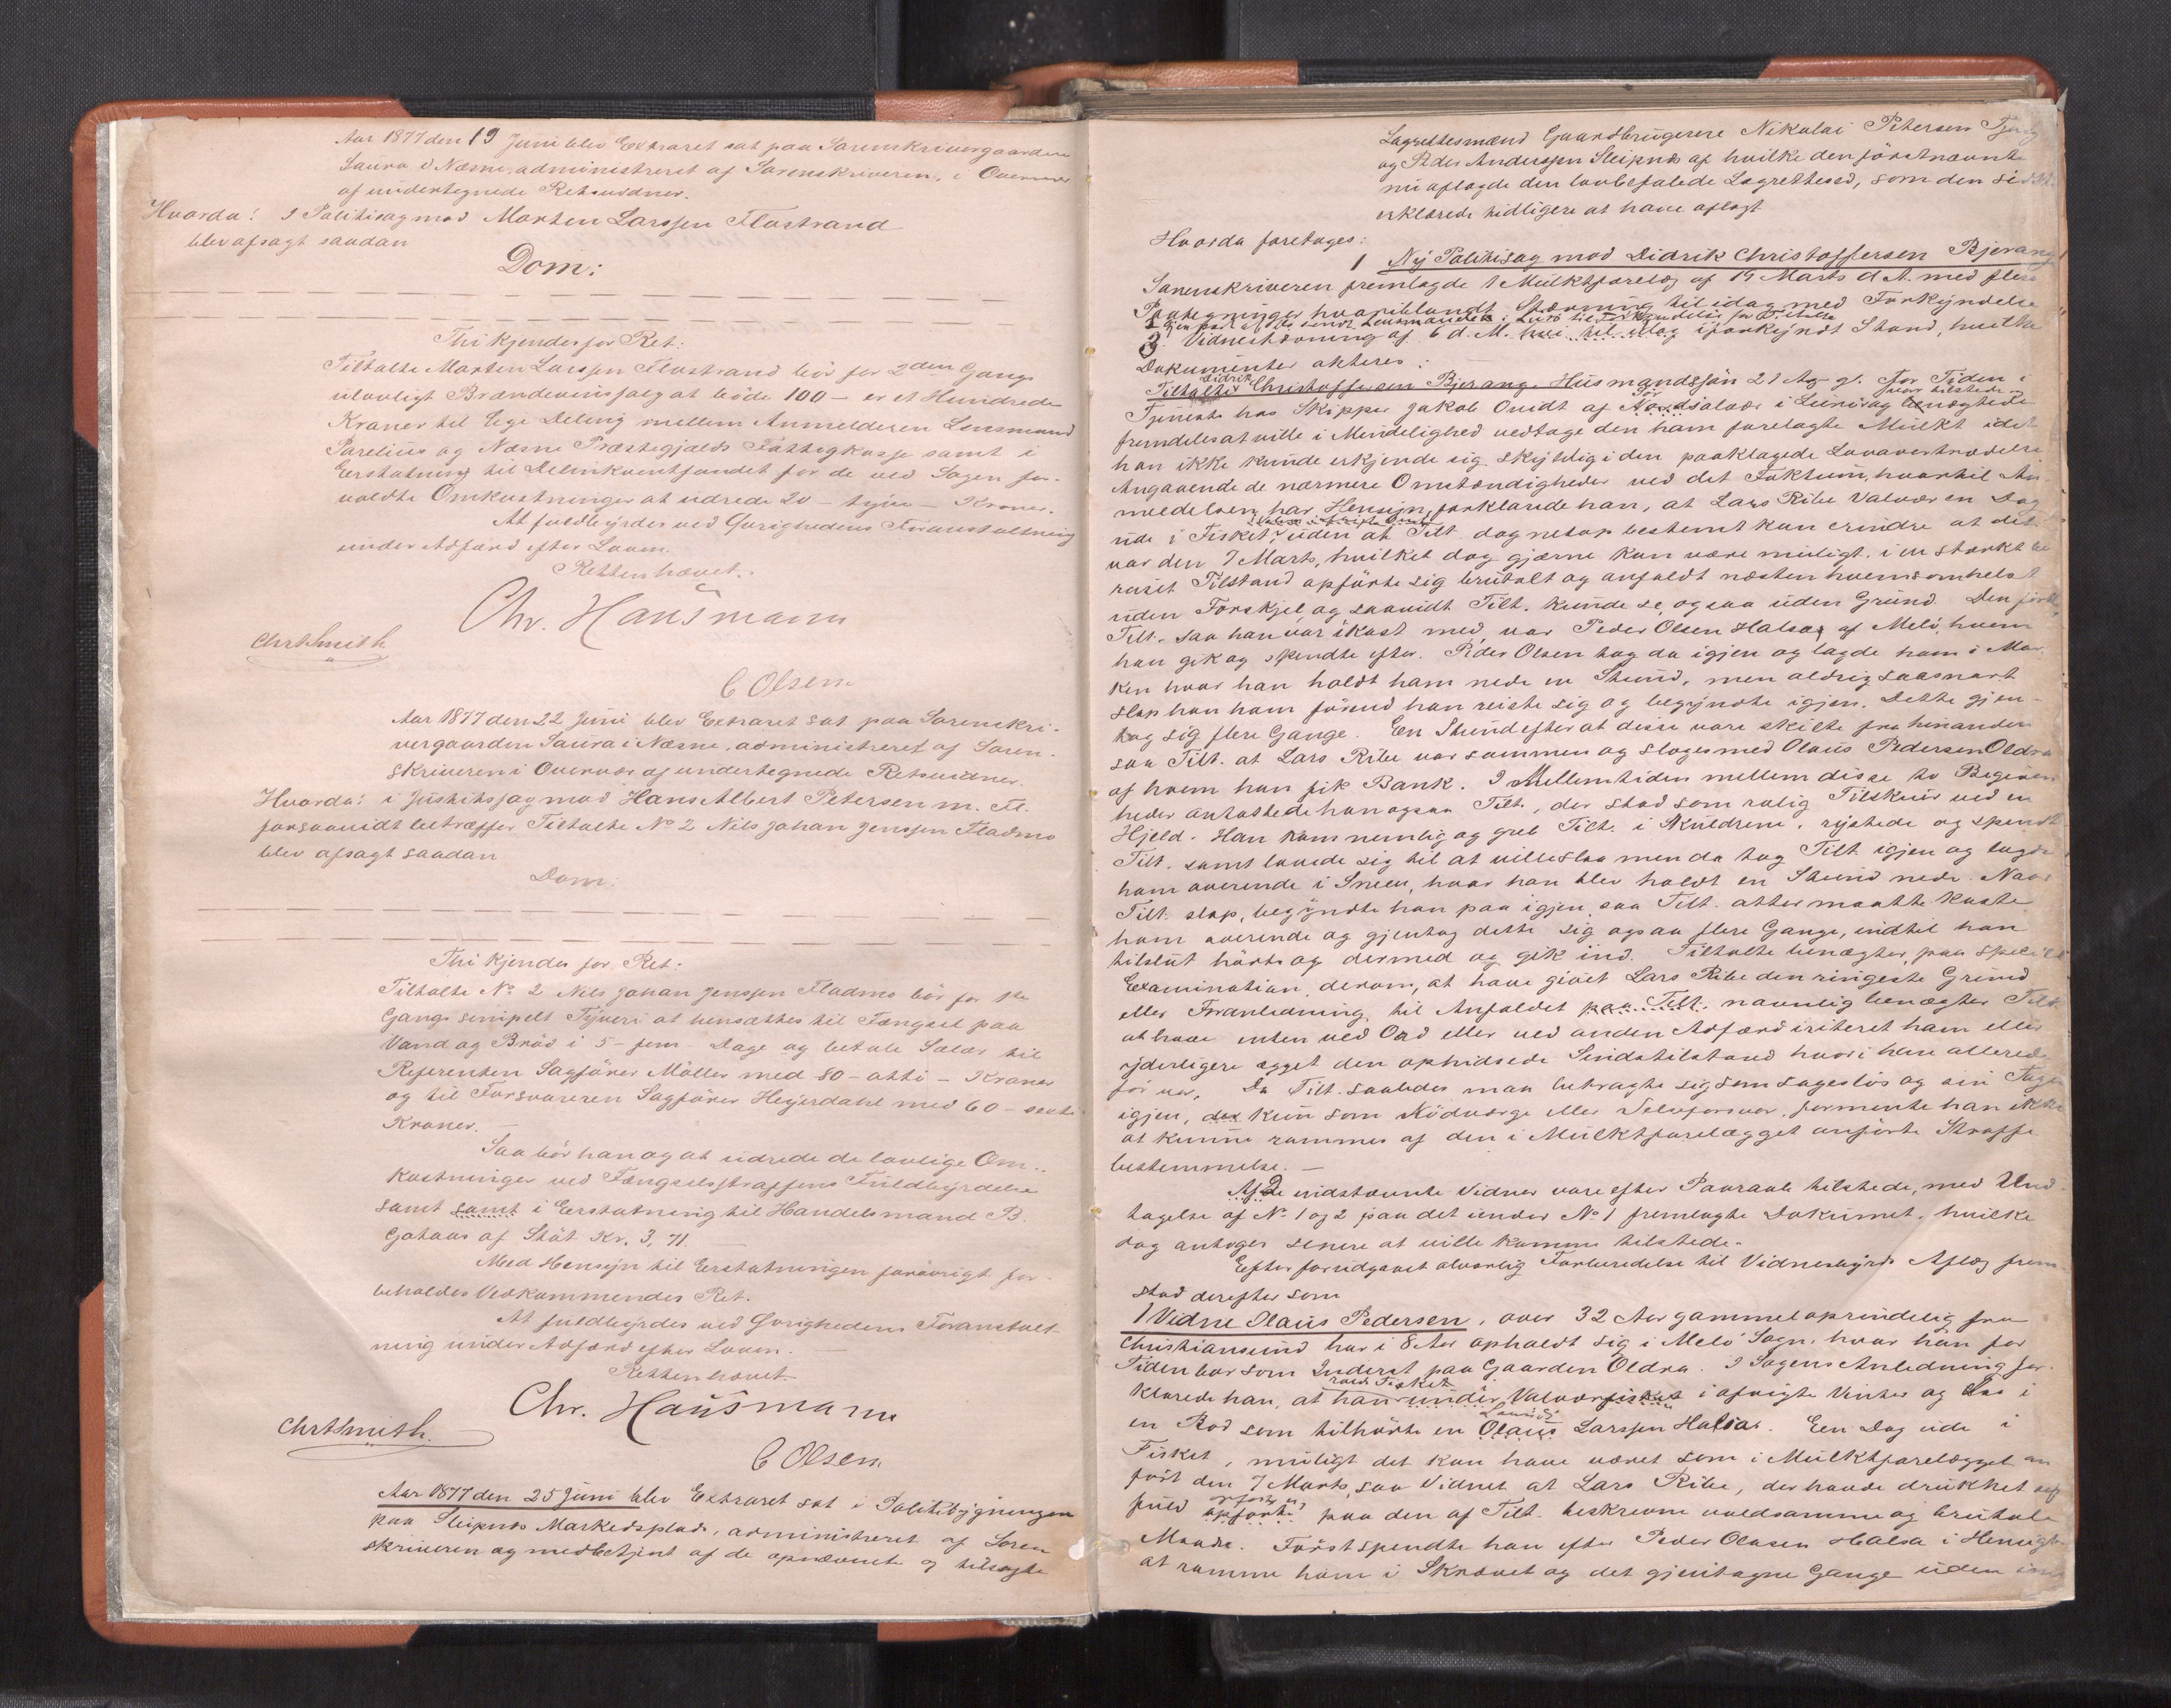 Aar 1877 den 19 Juni blev Extraret sat paa Sorenskrivergaarden
Saura i Næsne, administreret af Sorenskriveren, i Overvær
af undertegnede Retsvidner.
Hvorda: I Politisag mod Morten Larssen Flostrand
blev afsagt saadan
Dom:
Thi kjendes for Ret:
Tiltalte Morten Larssen Flostrand bör for 2den Gangs
ulovligt Brændevinssalg at böde 100 – et Hundrede
Kroner til lige Deling mellem Anmelderen Lensmand
Parelius og Næsne Præstegjelds Fattigkasse samt i
Erstatning til Delinkventfondet for de ved Sagen for-
voldte Omkostninger at udrede 20 – tyve – Kroner.
At fuldbyrdes ved Øvrighedens Foranstaltning
under Adfærd efter Loven.
Retten hævet.
Chr. Hausmann
Chr Smith
C Olsen.
Aar 1877 den 22 Juni blev Extraret sat paa Sorenskri-
vergaarden Saura i Næsne, administreret af Soren-
skriveren i Overvær af undertegnede Retsvidner.
Hvorda: i Justitssag mod Hans Albert Petersen m. Fl.
forsaavidt betræffer Tiltalte No 2 Nils Johan Jenssen Fladmo
blev afsagt saadan
Dom:
Thi kjendes for Ret:
Tiltalte No 2 Nils Johan Jenssen Fladmo bör for 1te
Gangs simpelt Tyveri at hensættes til Fængsel paa
Vand og Bröd i 5 – fem – Dage og betale Salær til
Referenten Sagförer Möller med 80 – otti – Kroner
og til Forsvareren Sagförer Heyerdahl med 60 – sexti
Kroner. –
Saa bör han og at udrede de lovlige Om-
kostninger ved Fængselsstraffens Fuldbyrdelse
samt samt i Erstatning til Handelsmand B.
Gotaas af Stöt Kr. 3,71. –
Med Hensyn til Erstatningen forövrigt for-
beholdes Vedkommendes Ret.
At fuldbyrdes ved Øvrighedens Foranstalt-
ning under Adfærd efter Loven. –
Retten hævet
Chr. Hausmann
Chr Smith.
C Olsen.
Aar 1877 den 25 Juni blev Extraret sat i Politibygningen
paa Sleipnes Markedsplads, administreret af Soren
skriveren og medbetjent af de opnævnte og tilsagte
Lagrettesmænd Gaardbrugerere Nikolai Petersen
og Peder Anderssen Sleipnes af hvilke den förstnævnte
nu aflagde den lovbefalede Lagretteseed, som den sidste
erklærede tidligere at have aflagt
Hvorda foretoges:
1 Ny Politisag mod Didrik Christoffersen Bjerang
Sorenskriveren fremlagde 1 Mulktforelæg af 19 Marts d A. med flere
Paategninger hvoriblandt Stævning til idag med Forkyndelse
3. Vidnestævning af 6 d. M. til idag i forkyndt Stand, hvilke
Dokumenter akteres: –
Didrik
Tiltalte Christoffersen Bjerang Husmandssön 21 Aar gl. for Tiden i
Tjeneste hos Skipper Jakob Qvidt af i Lurö var tilstede og benægtede
fremdeles at ville i Mindelighed vedtage den ham forelagte Mulkt idet
han ikke kunde erkjende sig skyldig i den paaklagede Lovovertrædelse
Angaaende de nærmere Omstændigheder ved det Faktum, hvortil An-
meldelsen har Hensyn, forklarede han, at Lars Ribe Valvær en Dag
ude i Fisket, uden at Tilt. dog netop bestemt kan erindre at det
var den 7 Marts, hvilket dog gjærne kan være muligt, i en stærkt be-
ruset Tilstand opförte sig brutalt og anfaldt næsten hvemsomhelst
uden Forskjel, og saavidt Tilt. kunde se, ogsaa uden Grund. Den förste,
Tilt. saa han var ikast med, var Peder Olsen Halsa af Melö, hvem
han gik og spendte efter. Peder Olsen tog da igjen og lagde ham i Mar-
ken hvor han holdt ham nede en Stund, men aldrig saasnart
slap han ham förend han reiste sig og begyndte igjen. Dette gjen-
tog sig flere Gange. En Stund efter at disse vare skilte fra hinanden
saa Tilt. at Lars Ribe var sammen og sloges med Olaus Pedersen Oldra
af hvem han fik Bank. I Mellemtiden mellem disse to Begiven-
heder antastede han ogsaa Tilt., der stod som rolig Tilskuer ved en
Hjeld. Han kom nemlig og greb Tilt. i Skuldrene, rystede og spendte
Tilt. samt lavede sig til at ville slaa men da tog Tilt igjen og lagde
ham overende i Sneen, hvor han blev holdt en Stund nede. Naar
Tilt. slap, begyndte han paa igjen, saa Tilt. atter maatte kaste
ham overende og gjentog dette sig ogsaa flere Gange, indtil han
tilslut hörte op dermed og gik ind. Tiltalte benægter, paa speciel
Examination, derom, at have givet Lars Ribe den ringeste Grund
eller Foranledning til Anfaldet paa Tilt. navnlig benægter Tilt.
at have enten ved Ord eller ved anden Adfærd irriteret ham eller
yderligere ægget den ophidsede Sindstilstand hvori han allerede
för var. Da Tilt. saaledes maa betragte sig som sageslös og sin Tagen
igjen, kun som Nödværge eller Selvforsvar, formente han ikke
at kunne rammes af den i Mulktforelægget anförte Straffe
bestemmelse. –
Af de indstævnte Vidner vare efter Paaraab tilstede, med Und-
tagelse af No 1 og 2 paa det under No 1 fremlagte Dokument, hvilke
dog antoges senere at ville komme tilstede. –
Efter forudgaaet alvorlig Forberedelse til Vidnesbyrds Aflæg frem-
stod derefter som
1 Vidne Olaus Pedersen, over 32 Aar gammel oprindelig fra
Christiansund har i 8 Aar opholdt sig i Melö Sogn, hvor han for
Tiden bor som Inderst paa Gaarden Oldra. I Sagens Anledning for-
klarede han, at han under Valværfisket i afvigte Vinter og laa i
en Bod som tilhörte en Olaus Larssen Halsa. Een Dag ude i
Fisket, muligt det kan have været som i Mulktforelægget an-
fört den 7 Marts, saa Vidnet at Lars Ribe, der havde drukket sig
fuld opförte paa den af Tilt. beskrevne voldsomme og brutale
Maade. Först spendte han efter Peder Olsen Halsa i Hensigt
at ramme ham i Skrævet og det gjentagne Gange uden